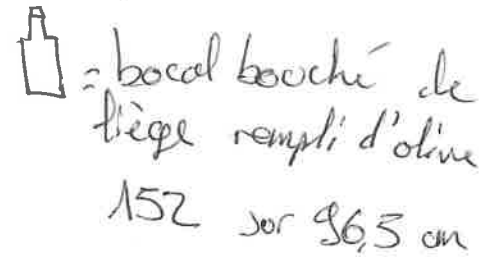 = bocal bouché de
liège rempli d'olive
152 sor 96,5 cm